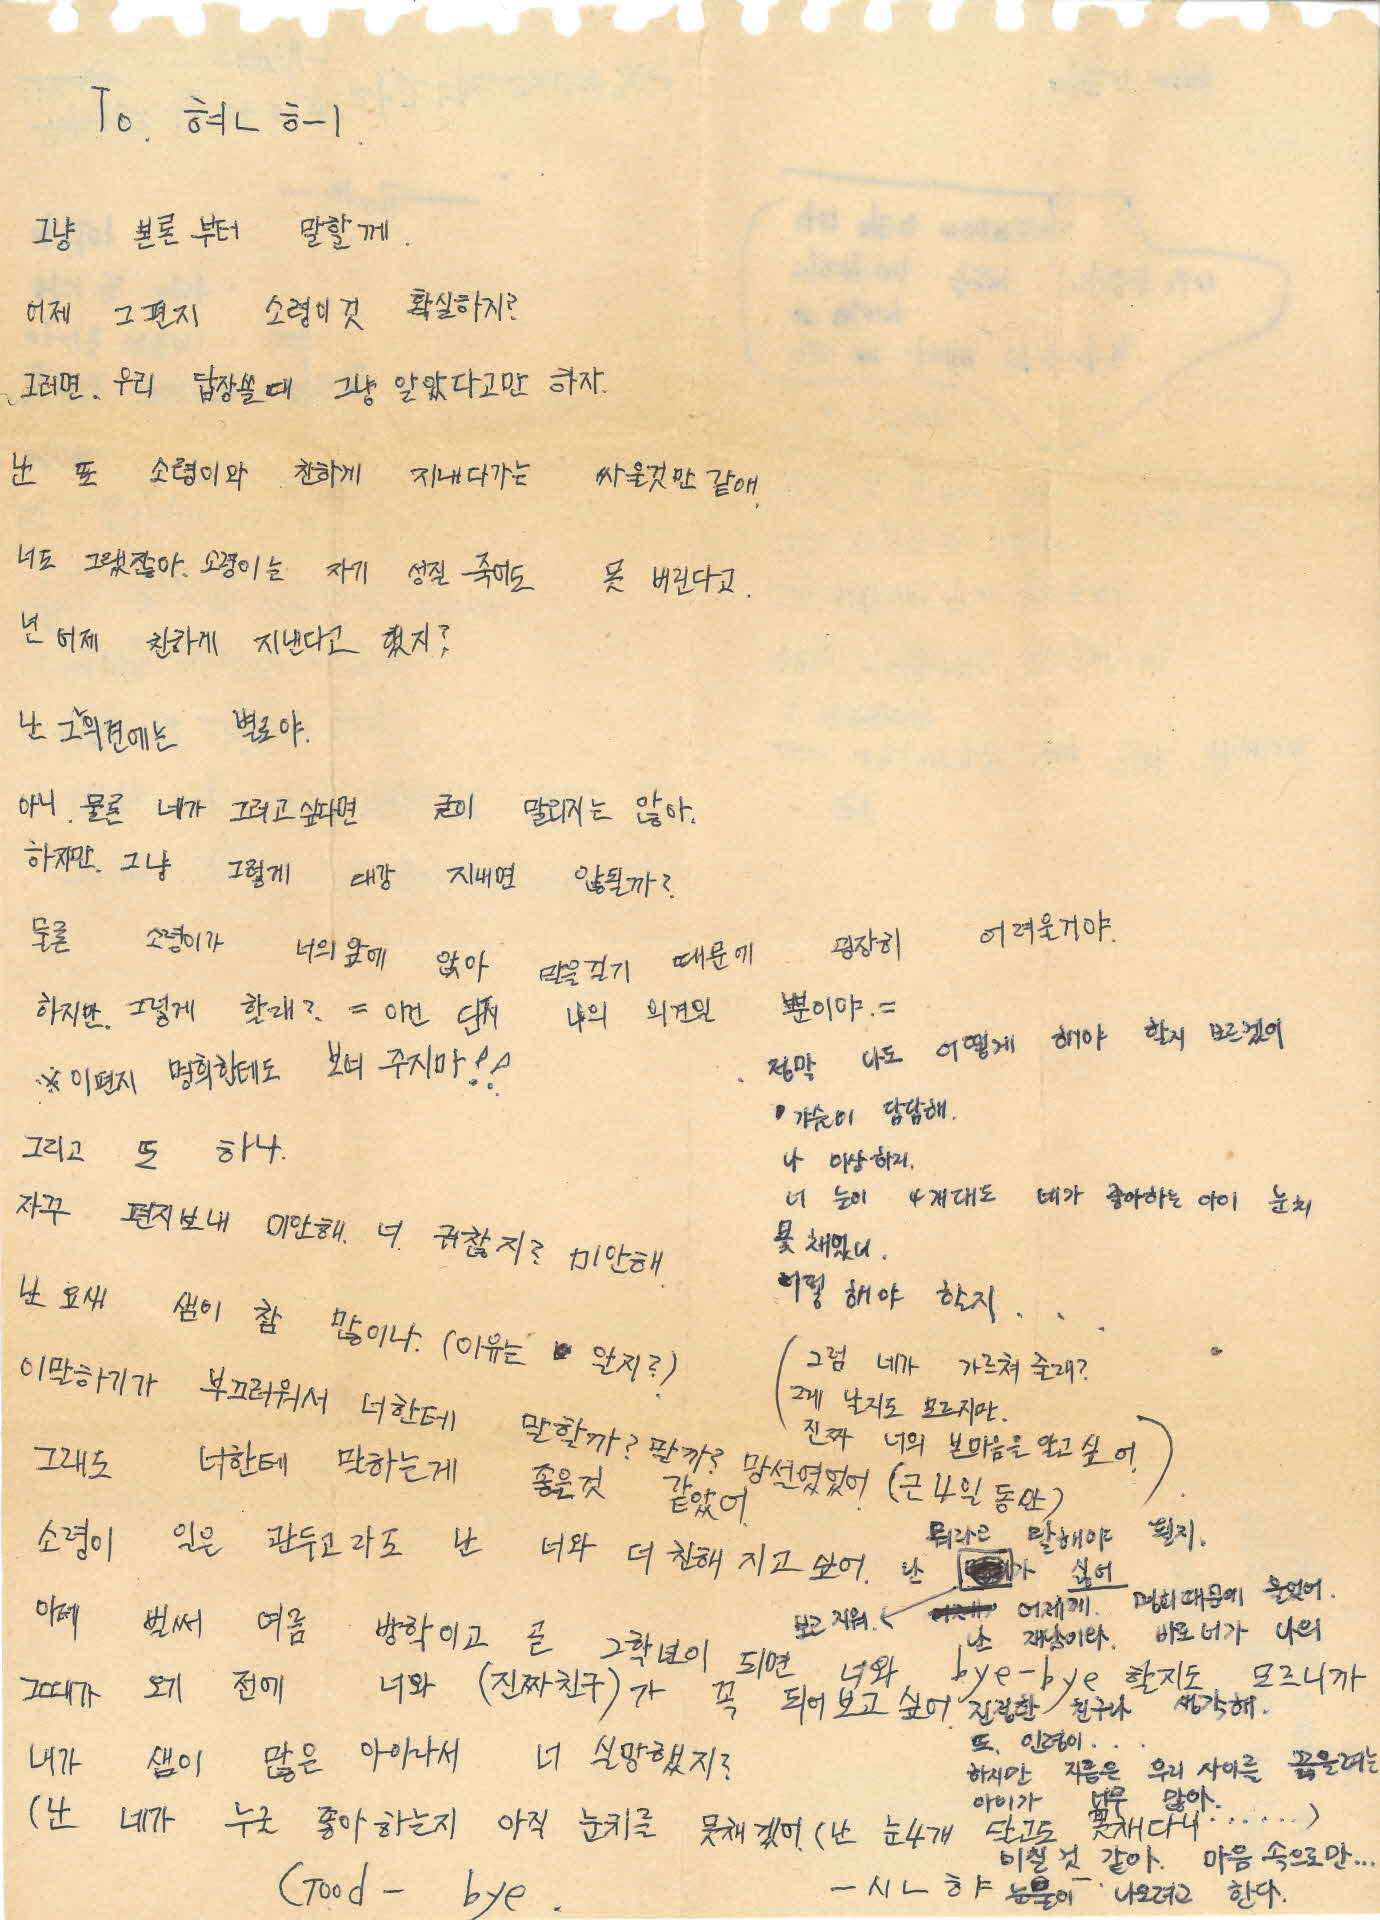 To. 혀ㄴ 히ㅡㅣ.
그냥 본론부터 말할께.
어제 그편지 소령이것 확실하지?
그러면. 우리 답장쓸때 그냥 알았다고만 하자.
난 또 소령이와 친하게 지내다가는 싸울것만 같애.
너도 그랬잖아. 소령이는 자기 성질 죽어도 못 버린다고.
넌 어제 친하게 지낸다고 했지?
난 그의견에는 별로야.
아니. 물론 네가 그러고싶다면 굳이 말리지는 않아.
하지만. 그냥 그렇게 대강 지내면 않될까?
물론 소령이가 너의앞에 앉아 말을걸기 때문에 굉장히 어려울거야.
하지만. 그렇게 할래? = 이건 단지 나의 의견일 뿐이야. =
※이편지 명희한테도 보녀 주지마!!
그리고 또 하나.
자꾸 편지보내 미안해. 너 귀찮지? 미안해.
난 요새 샘이 참 많이나. (이유는 알지?)
이말하기가 부끄러워서 너한테 말할까? 말까? 망설였었어 (근 4일 동안)
그래도 너한테 말하는게 좋을것 같았어.
소령이 일은 관두고라도 난 너와 더 친해 지고 싶어.
이제 벌써 여름 방학이고 곧 2학년이 되면 너와 bye-bye 할지도 모르니까
그때가 오기 전에 너와 (진짜친구)가 꼭 되어보고 싶어.
내가 샘이 많은 아이라서 너 실망했지?
(난 네가 누굴 좋아하는지 아직 눈치를 못채겠어. (난 눈4개 달고도 못채다니......)
Good - bye.
- 시ㄴ 햐 -
정말 나도 어떻게 해야 할지 모르겠어
가슴이 답답해.
나 이상하지.
너 눈이 4개대도 네가 좋아하는 아이 눈치
못채었니.
어떻 해야 할지 . . .
(그럼 네가 가르쳐 줄래?
그게 날지도 모르지만.
진짜 너의 본마음을 알고 싶어.)
뭐라고 말해야 될지.
난 가 싫어
보고 지워.
어제께. 명희때문에 울었어.
난 재남이와. 바로너가 나의
진정한 친구라 생각해.
또. 인영이...
하지만 지름은 우리 사이를 끊을려는
아이가 너무 많아.
미칠것 같아. 마음 속으로만...
눈물이 나오려고 한다.